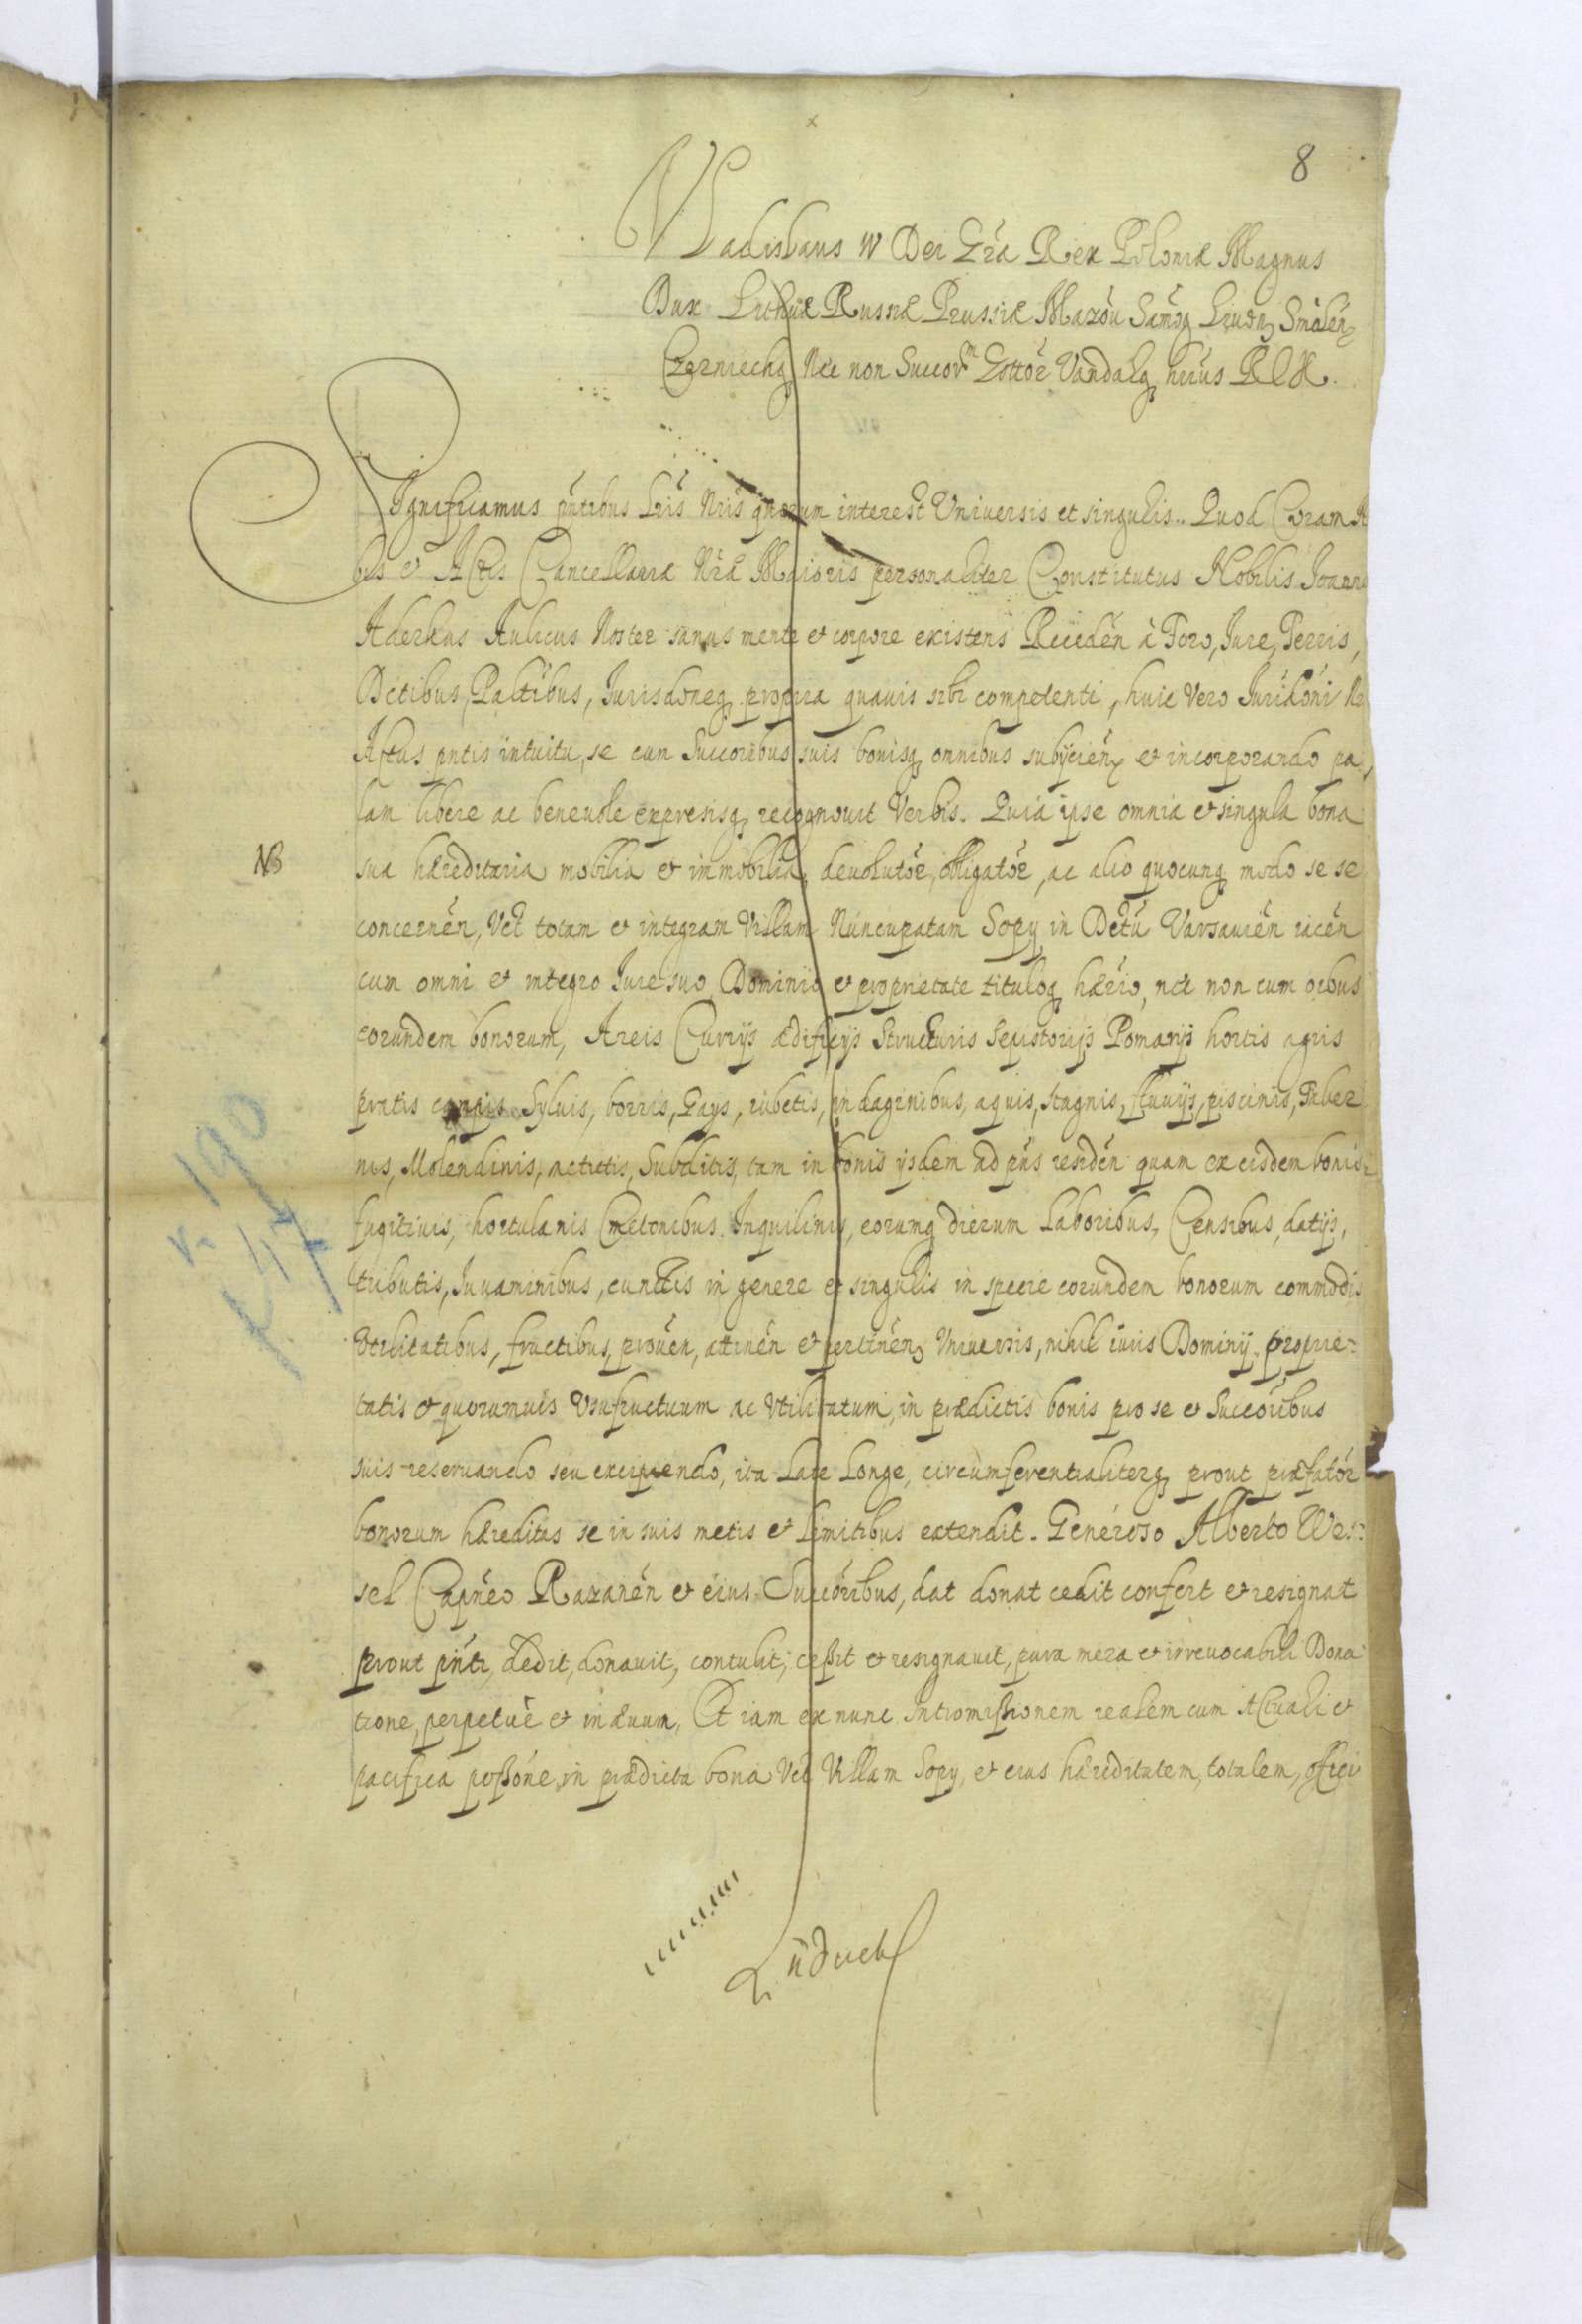 8
Vladislaus IV Dei Gra Rex Poloniæ Magnus
Dux Lithuæ Russiæ Prussiæ Mazou Samog Liuonq Smolen
Czerniechq Nec non Suecorm Gottor Vandalq hrius Rex.
Significamus pntibus Lris Nris quorum interest Vniuersis et singulis. Quod Coram A
bis et Actis Cancellariæ Nræ Maioris personaliter Constitutus Nobilis Joanne
Aderkas Aulicus Noster sanus mente et corpore existens Receden à Foro, Jure, Terris,
Dctibus, Paltibus, Jurisdoneq propria quauis sibi competenti, huic Vero Jurisdoni Nr
Actus pntis intuitu, se cum Succoribus suis bonisq omnibus subÿcien et incorporando pa,
lam libere ac beneuole expresisq recognouit Verbis. Quia ipse omnia et singula bona
NB
sua hæreditaria mobilia et immobilia, deuolutor, obligator, ac alio quocunq modo se se
concernen, Vct totam et integram Villam Nuncupatam Sopy in Dctu Varsauien iacen
cum omni et integro Jure suo Dominio et proprietate tituloq hærio, nec non cum oibus
eorundem bonorum, Areis Curiÿs ædificÿs Structuris Sepistorÿs Pomarÿs hortis agris
pratis campis Syluis, borris, Gays, rubetis, indaginibus, aquis, stagnis, fluuÿs, piscinis, Taber
nis, Molendinis, actictis, Subditis, tam in bonis ÿsdem ad pns residen quam ex eisdem bonis
fugitiuis, hortulanis Cmetonibus Inquilinis, eorumq dierum laboribus, Censibus, datÿs,
v. 190
f 47
tributis, Juuaminibus, cunctis in genere et singulis in specie eorundem bonorum commodis
Vtilitatibus, fructibus, prouen, attinen et pertinen, Vniuersis, nihil iuris Dominÿ proprie-
tatis et quorumuis Vsufructuum ac Vtilitatum, in prædictis bonis pro se et Succoribus
suis reseruando seu excipiendo, ita Late Longe, circumferentialiterq prout præfator
bonorum hæreditas se in suis metis et limitibus extendit. Generoso Alberto Wes-
sel Capneo Razanen et eius Succoribus, dat donat cedit confert et resignat
prout pnti, dedit, donauit, contulit, ceßit et resignauit, pura mera et irreuocabili Dona
tione, perpetuè et in æuum, Et iam ex nunc Intromißionem realem cum Actuali et
pacifica poßone, in prædicta bona Vct Villam Sopy, et eius hæreditatem, totalem, offici